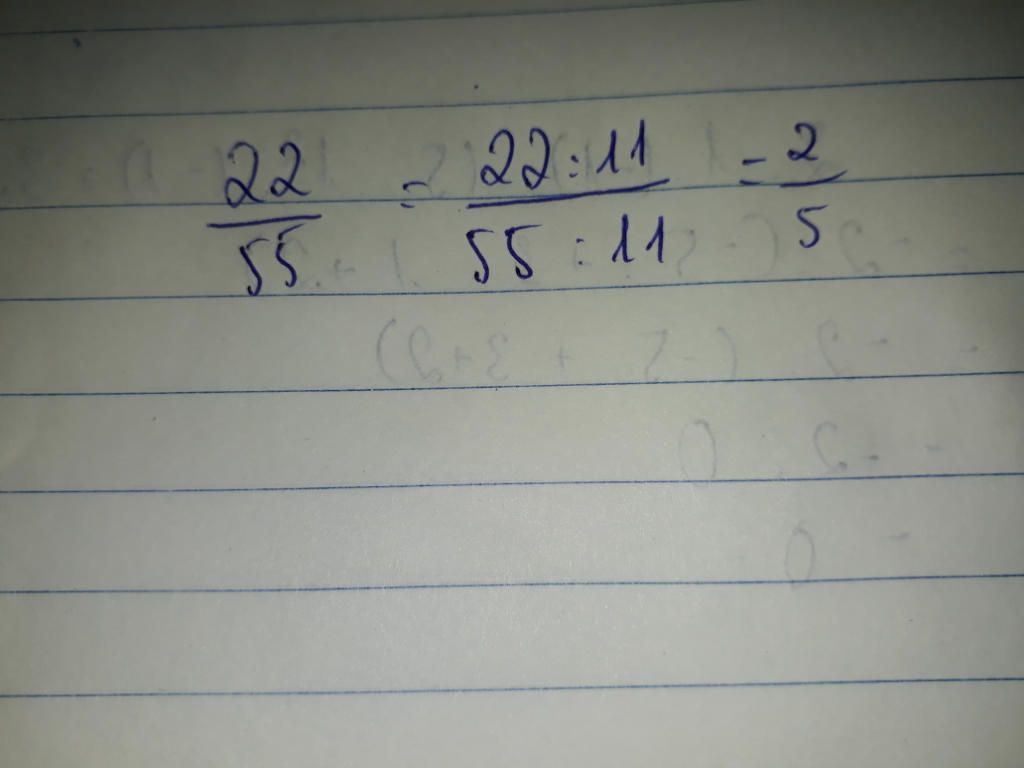 22/55 = 22:11/55:11 = 2/5